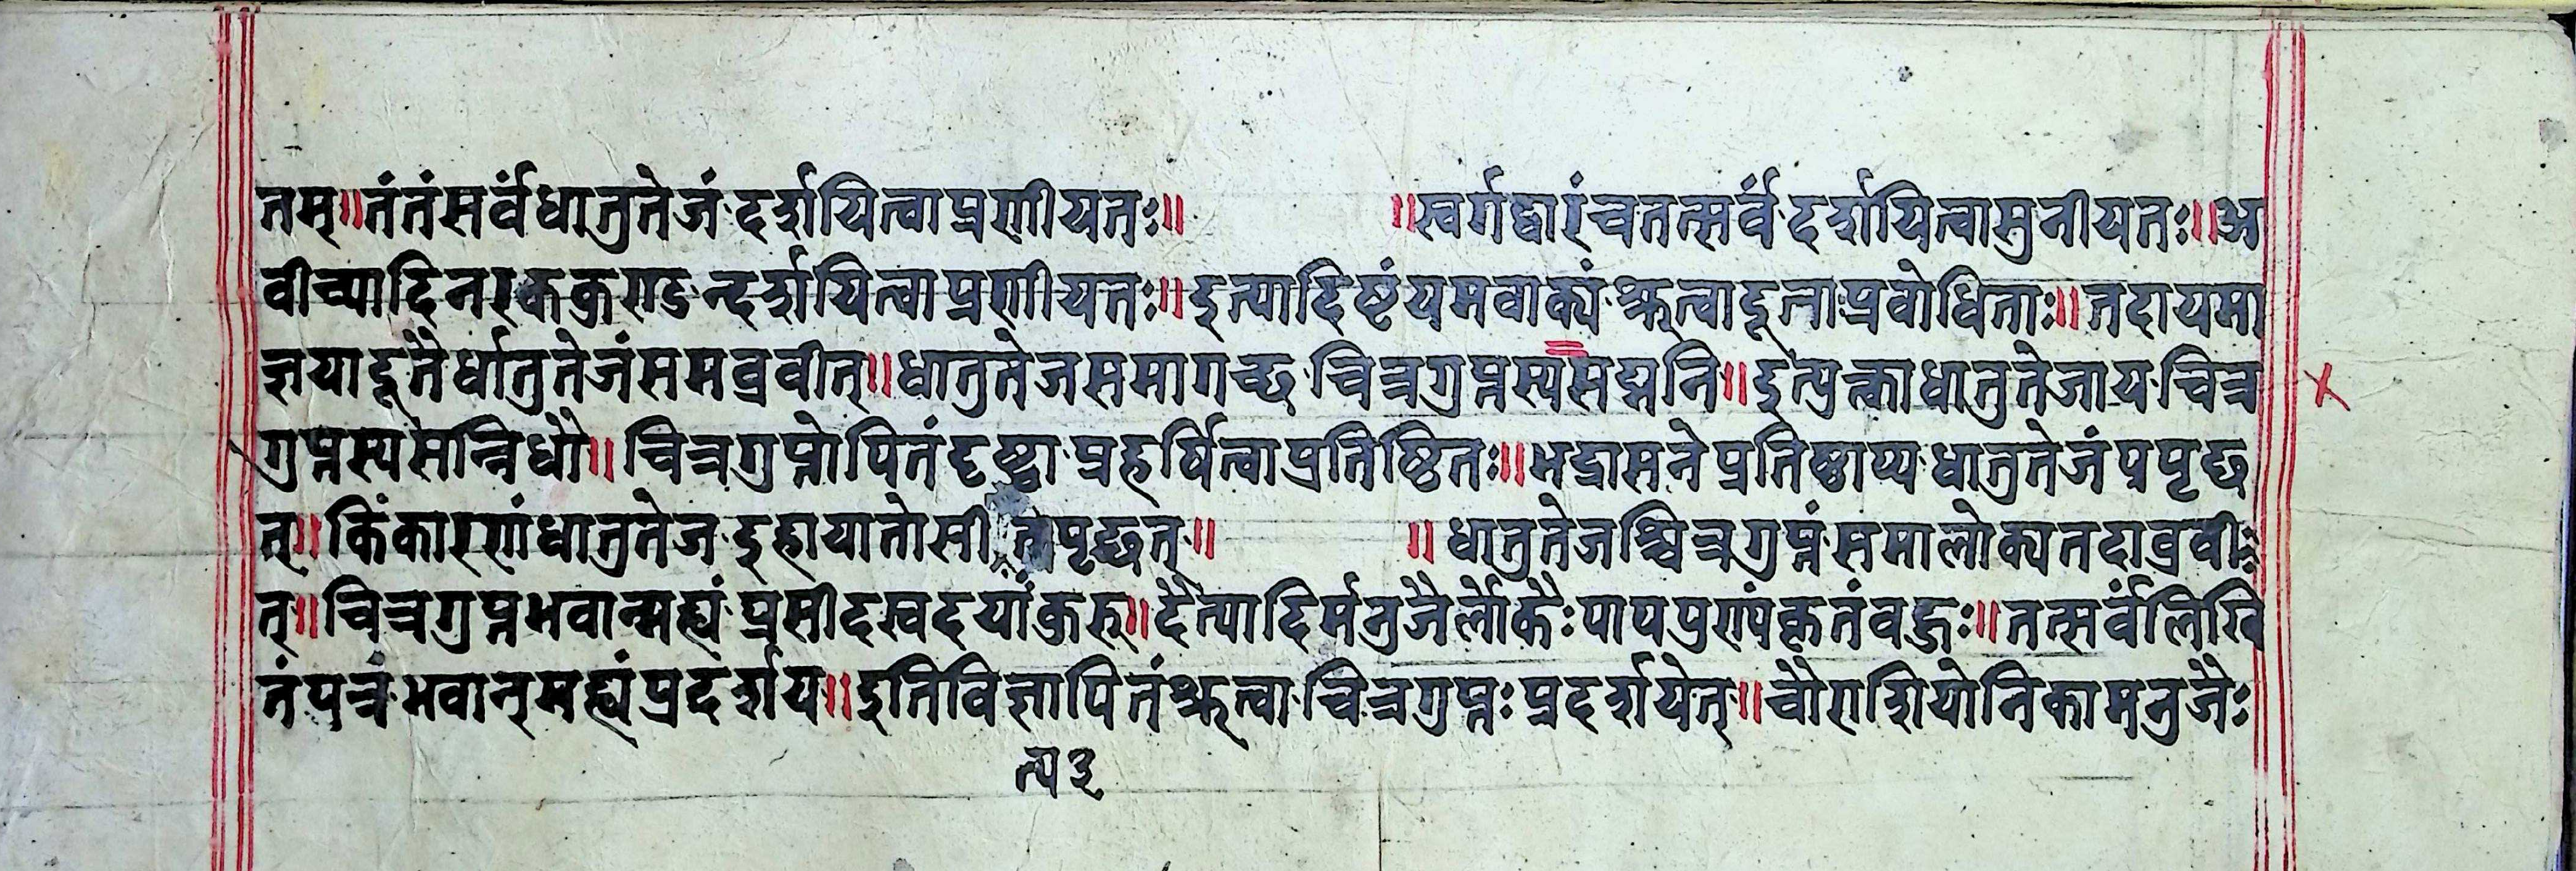 तम्॥तंतंसर्वंधातुतेजंदर्शयित्वाप्रणीयतः॥ ॥स्वर्गद्वारंचतत्सर्वंदर्शयित्वासुनीयतः॥अ
वीच्यादिनरककुण्डन्दर्शयित्वाप्रणीयतः॥इत्यादिष्टंयमवाक्यंश्रुत्वादूताप्रवोधिताः॥तदायमा
ज्ञयादूतैर्धातुतेजंसमव्रवीत्॥धातुतेजसमागच्छचित्रगुप्तस्यसद्मनि॥इत्युक्त्वाधातुतेजायचित्र
गुप्तस्यसन्निधौ॥चित्रगुप्तोपितंदृष्ट्वाप्रहर्षित्वाप्रतिष्ठितः॥भद्रासनेप्रतिष्ठाप्यधातुतेजंपप्रृच्छ
त्॥किंकारणंधातुतेजइहायातोसीतपृच्छत्॥ ॥धातुतेजश्चित्रगुप्तंसमालोक्यतदाव्रवी
त्॥चित्रगुप्तभवान्मह्यंप्रसीदस्वदयांकुरु॥दैत्यादिर्मनुजैर्लोकैःपापपुण्यंकृतंवहुः॥तत्सर्वंलिखि
तंपत्रंभवान्मह्यंप्रदर्शय॥इतिविज्ञापितंश्रुत्वाचित्रगुप्तःप्रदर्शयेत्॥चौराशियोनिकामनुजैः
त्य३